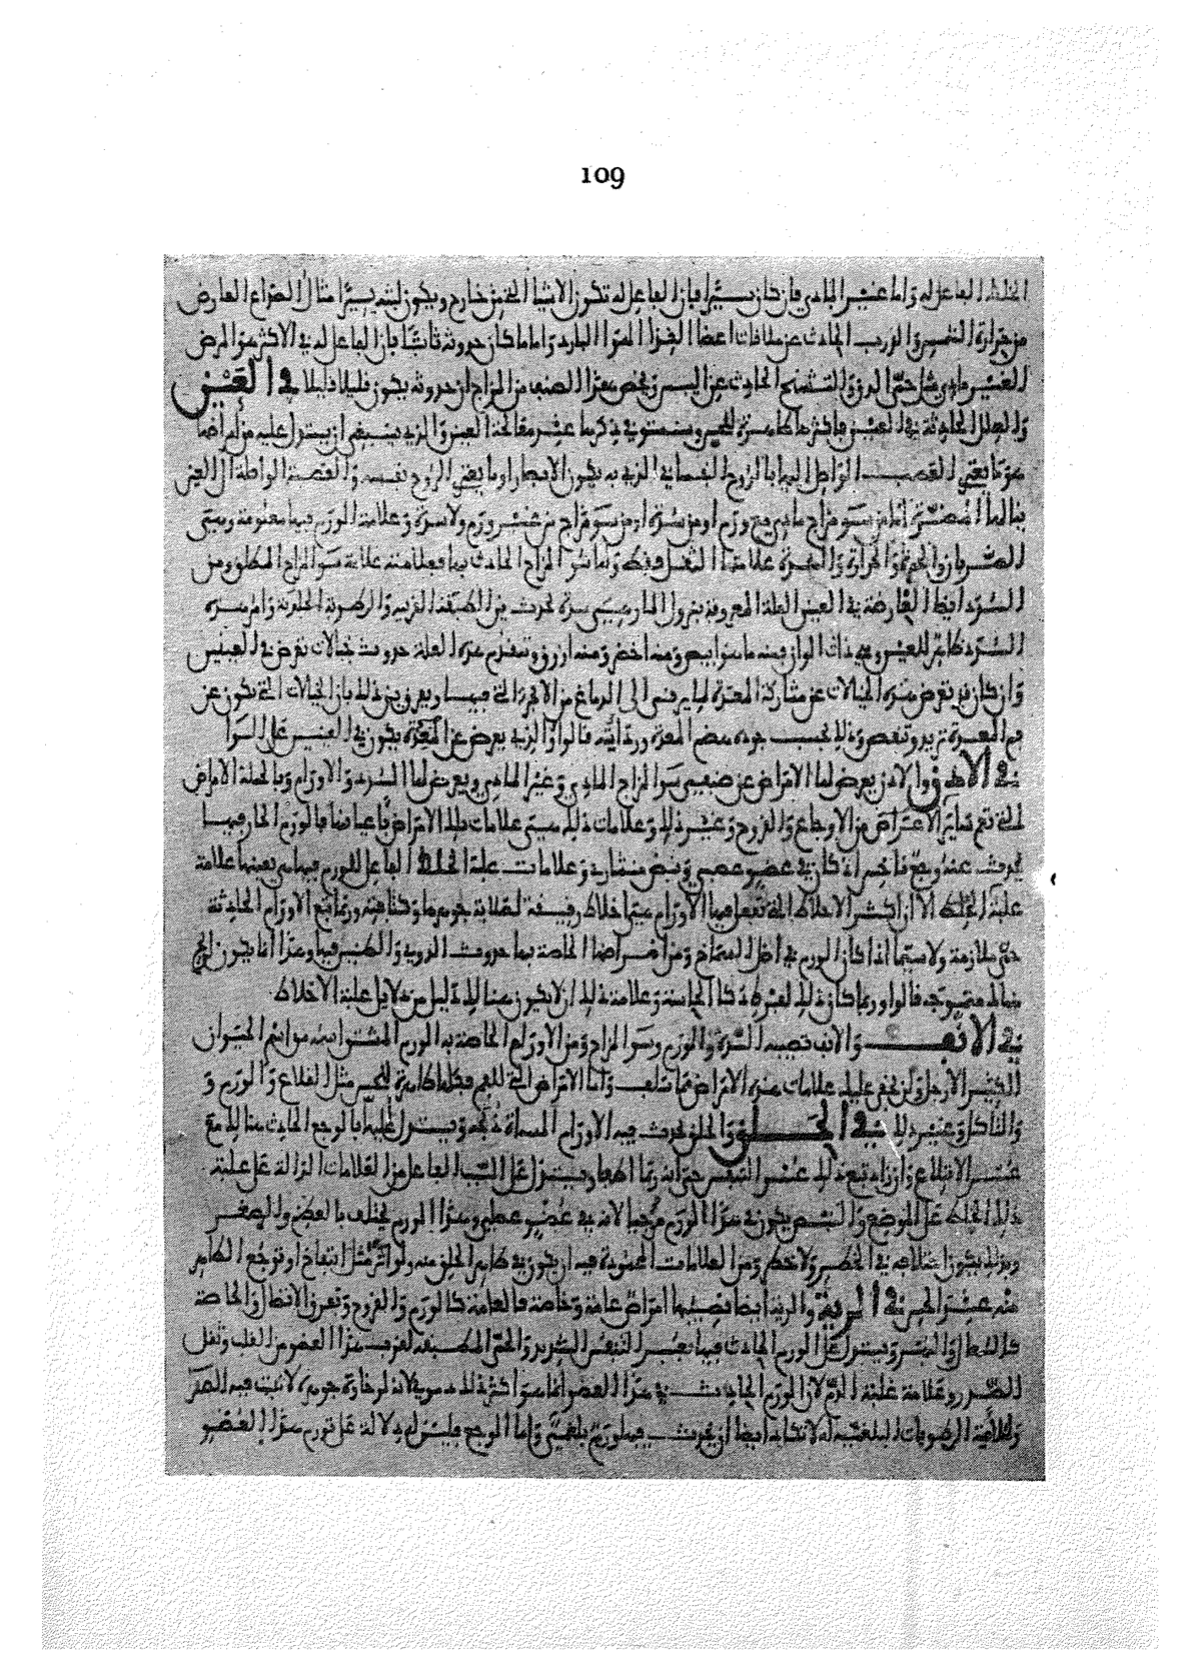 109
الخلط الفاعل له واما غير المادي فان كان يسيرا فان الفاعل له تكون الاشيا التي من خارج ويكون لبثه يسيرا مثال الصداع العارض
من حرارة الشمس والورم الحادث عن ملاقات اعضا الهوا البارد واما ما كان حدوثه ثابتا فان الفاعل له في الاكثر هو المرض
الغير مادي مثل حمى الدق والتشنج الحادث عن اليبس ويخص هذا الصنف من المزاج ان حدوثه يكون قليلا قليلا في العين
والعلل الحادثة في العين فاكثرها ظاهرة للحس وسنستوفي ذكرها عند معالجة العين والذي ينبغي ان يستدل عليه من امراضها
هو ما يعتري العصب الواصل اليها بالروح النفساني الذي به يكون الابصار او ما يعتري الروح نفسه والعصبة الواصلة الى العين
ينالها المضرة اما من سوء مزاج مادي مع ورم او من سدة او من سوء مزاج من غير ورم ولا سدة وعلامة الورم فيها معلومة وهي
الضربان والحمرة والحرارة والسدة علامتها الثقل فقط واما سوء المزاج الحادث بها فعلامته علامة سوء المزاج المطلق ومن
السدد ايضا العارضة في العين العلة المعروفة بنزول الما وهي سدة تحدث بين الطبقة القرنية والرطوبة الجلدية وامر هذه
السدد ظاهر للحس وهي ذات الوان فمنه ما هو ابيض ومنه اخضر ومنه ازرق وتتقدم هذه العلة حدوث خيالات تعرض في العينين
وان كان قد تعرض هذه الخيالات عن مشاركة المعدة لما يرتقي الى الدماغ من الابخرة التي فيها ويفرق بين ذلك بان الخيالات التي تكون عن
فم المعدة تزيد وتنقص وذلك بحسب جودة هضم المعدة ورداءته قالوا والذي يعرض عن المعدة يكون في العينين على السوا
في الاذن والاذن يعرض لها الامراض عن صنفي سوء المزاج المادي وغير المادي ويعرض لها السدد والاورام وبالجملة الامراض
التي تتبع سائر الاعراض من الاوجاع والقروح وغير ذلك وعلامات ذلك هي علامات تلك الامراض باعيانها فالورم الحار فيها
يحدث عنه وجع ناخس اذ كان في عضو عصبي ونبض منشاري وعلامات غلبة الخلط الفاعل للورم فيها هي بعينها علامة
غلبة الخلط الا ان اكثر الاخلاط التي تفعل فيها الاورام هي اخلاط رقيقة لصلابة جوهرها وكثافته وربما تبع الاورام الحادثة
حمى ملازمة ولا سيما اذا كان الورم في اصل الصماخ ومن اعراضها الخاصة بها حدوث الدوي والطنين فيها وهذا انما يكون لريح
هنالك متموجه قالوا وربما كان ذلك لفرط ذكا الحاسة وعلامة ذلك ان لا يكون هنالك دليل من دلايل غلبة الاخلاط
في الانف والانف تصيبه السدة والورم وسوء المزاج ومن الاورام الخاصة به الورم المشتق اسمه من اسم الحيوان
الكثير الارجل ولن تخفى عليك علامات هذه الامراض مما سلف واما الامراض التي للفم فكلها ظاهرة للحس مثل القلاع والورم و
والتاكل وغير ذلك في الحلق والحلق تحدث فيه الاورام المسماة ذبحة ويستدل عليها بالوجع الحادث هنالك مع
عسر الابتلاع وان زاد تبع ذلك عسر التنفس حتى انه ربما اهلك ويستدل على السبب الفاعل من العلامات الدالة على غلبة
ذلك الخلط على الموضع والنبض يكون في هذا الورم موجيا لانه في عضو عضلي وهذا الورم يختلف بالعظم والصغر
وبذلك يكون اختلافه في الخطر ولا خطر ومن العلامات المحمودة فيه ان يكون في ظاهر الحلق منه ولو اثر مثل انتفاخ او توجع الظاهر
منه عند الحس في الرية والرية ايضا تصيبها امراض عامة وخاصة فالعامة كالورم والقروح وتفرق الاتصال والخاصة
كالسعال والبهر ويستدل على الورم الحادث فيها بعسر التنفس الشديد والحمى المطبقة لقرب هذا العضو من القلب وثقل
الصدر وعلامة غلبة الدم لان الورم الحادث في هذا العضو انما هو اكثر ذلك دموي لانه لرخاوة جوهره لا تلبث فيه الصفرا
ولملاقاة الرطوبات البلغمية له لا تكاد ايضا ان يحدث فيه ورم بلغمي واما الوجع فليس له دلالة على تورم هذا العضو